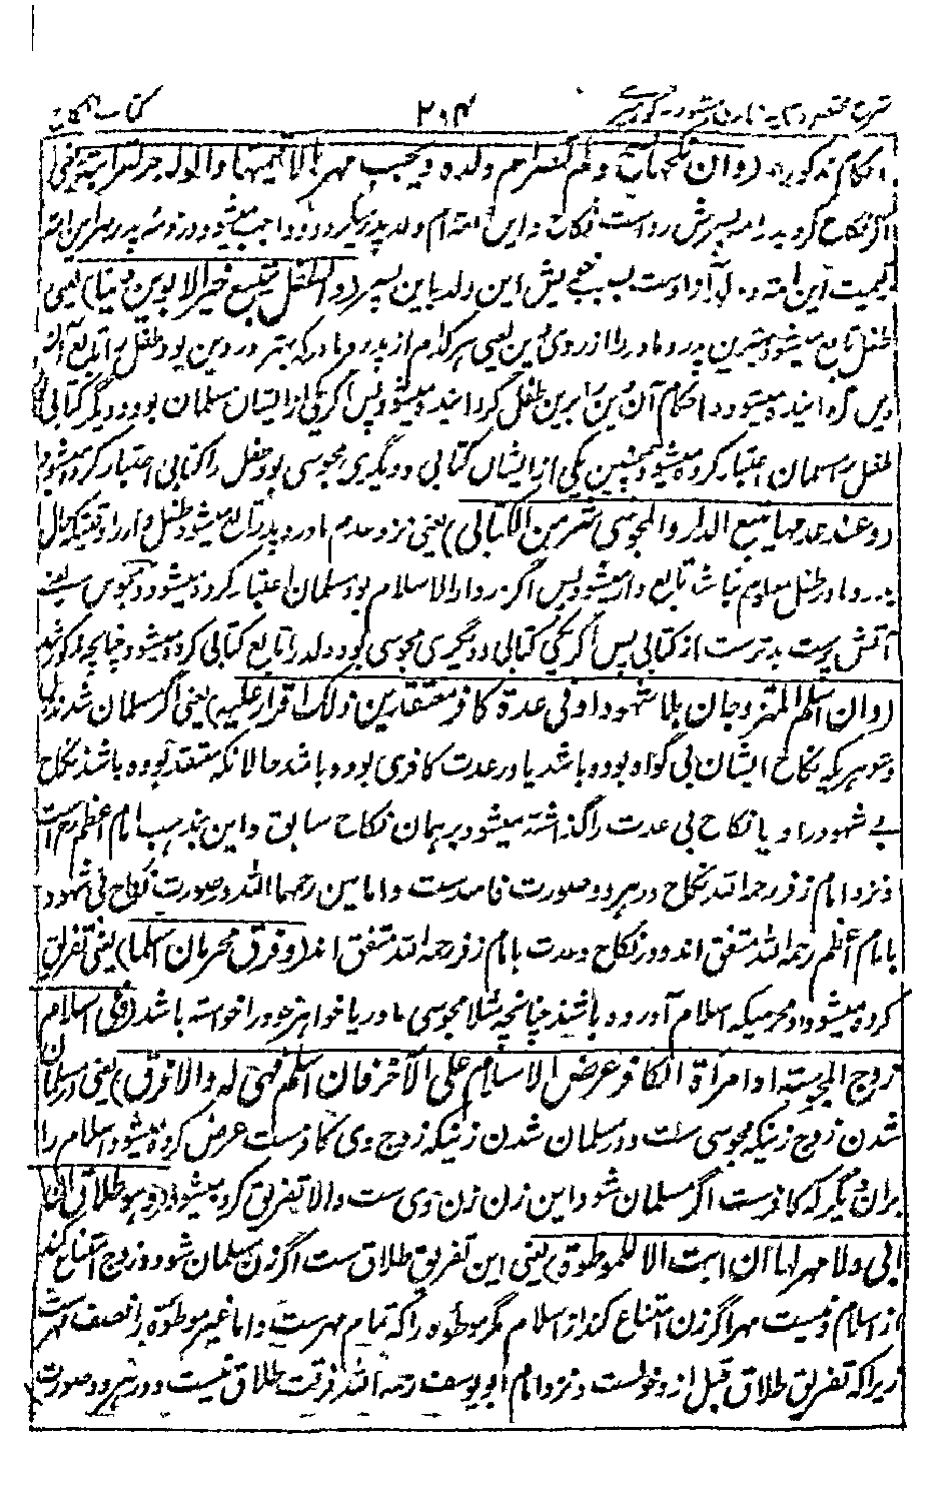 ۲۰۴ کتاب النکاح
احکام مذکوره (وان نکحها ولم ولده ویجب مهرها لا قیمتها والولد حر لقرابته) یعنی
اگر نکاح کرد پدر پسرش رواست نکاح و این ام ولد پدر نمیگردد و واجب میشود در ذمه پدر مهر این امه
نه قیمت این امه و ولد آزادست بسبب خویش این ولد باین پسر (والطفل یتبع خیر الابوین دینا) یعنی
طفل تابع میشود بهترین پدر و مادر را از روی دین یعنی هر کدام از پدر و مادر که بهتر در دین بود طفل را تابع آن
دین گردانیده میشود و احکام آن دین را برین طفل گردانیده میشود پس اگر یکی از ایشان مسلمان بود و دیگر کتابی
طفل را مسلمان اعتبار کرده میشود همچنین یکی از ایشان کتابی و دیگری مجوسی بود طفل را کتابی اعتبار کرده میشود
(وعند عدمها یتبع الدار والمجوسی شر من الکتابی) یعنی نزد عدم مادر و پدر تابع میشود طفل دار را وقتیکه حال
پدر و مادر طفل معلوم نباشد تابع دار میشود پس اگر در دار الاسلام بود مسلمان اعتبار کرده میشود و مجوس یعنی
آتش پرست بدترست از کتابی پس اگر یکی کتابی و دیگری مجوسی بود ولد را تابع کتابی کرده میشود چنانچه مذکور شد
(وان اسلم المتزوجان بلا شهود او فی عدة کافر معتقدین ذلک اقرا علیه) یعنی اگر مسلمان شدند زن
و شوهریکه نکاح ایشان بی گواه بوده باشد یا در عدت کافری بوده باشد حالانکه معتقد بوده باشند نکاح
بے شهود را و یا نکاح بی عدت را گذاشته میشود بر همان نکاح سابق و این مذهب امام اعظم رح است
و نزد امام زفر رحمه الله نکاح در هر دو صورت فاسدست و امامین رحمهما الله در صورت نکاح بی شهود
با امام اعظم رحمه الله متفق اند و در نکاح عدت با امام زفر رحمه الله متفق اند (وفرق محرمان اسلما) یعنی تفریق
کرده میشود دو محرمیکه اسلام آورده باشند چنانچه مثلا مجوسی مادر یا خواهر خود را خواسته باشد (وفی اسلام
زوج المجوسیة او امرأة الکافر عرض الاسلام علی الآخر فان اسلم فهی له والا فرق) یعنی در مسلمان
شدن زوج زنیکه مجوسی ست و در مسلمان شدن زنیکه زوج وی کافرست عرض کرده میشود اسلام را
بران دیگر که کافرست اگر مسلمان شود این زن زن وی ست والا تفریق کرده میشود (وهو طلاق ان
ابی ولا مهر لها ان ابت الا للموطوة) یعنی این تفریق طلاق ست اگر زن مسلمان شود و زوج امتناع کند
از اسلام و نیست مهر اگر زن امتناع کند از اسلام مگر موطوه را که تمام مهرست و اما غیر موطوه را نصف مهرست
زیرا که تفریق طلاق قبل از دخولست و نزد امام ابو یوسف رحمه الله فرقت طلاق نیست در هر دو صورت